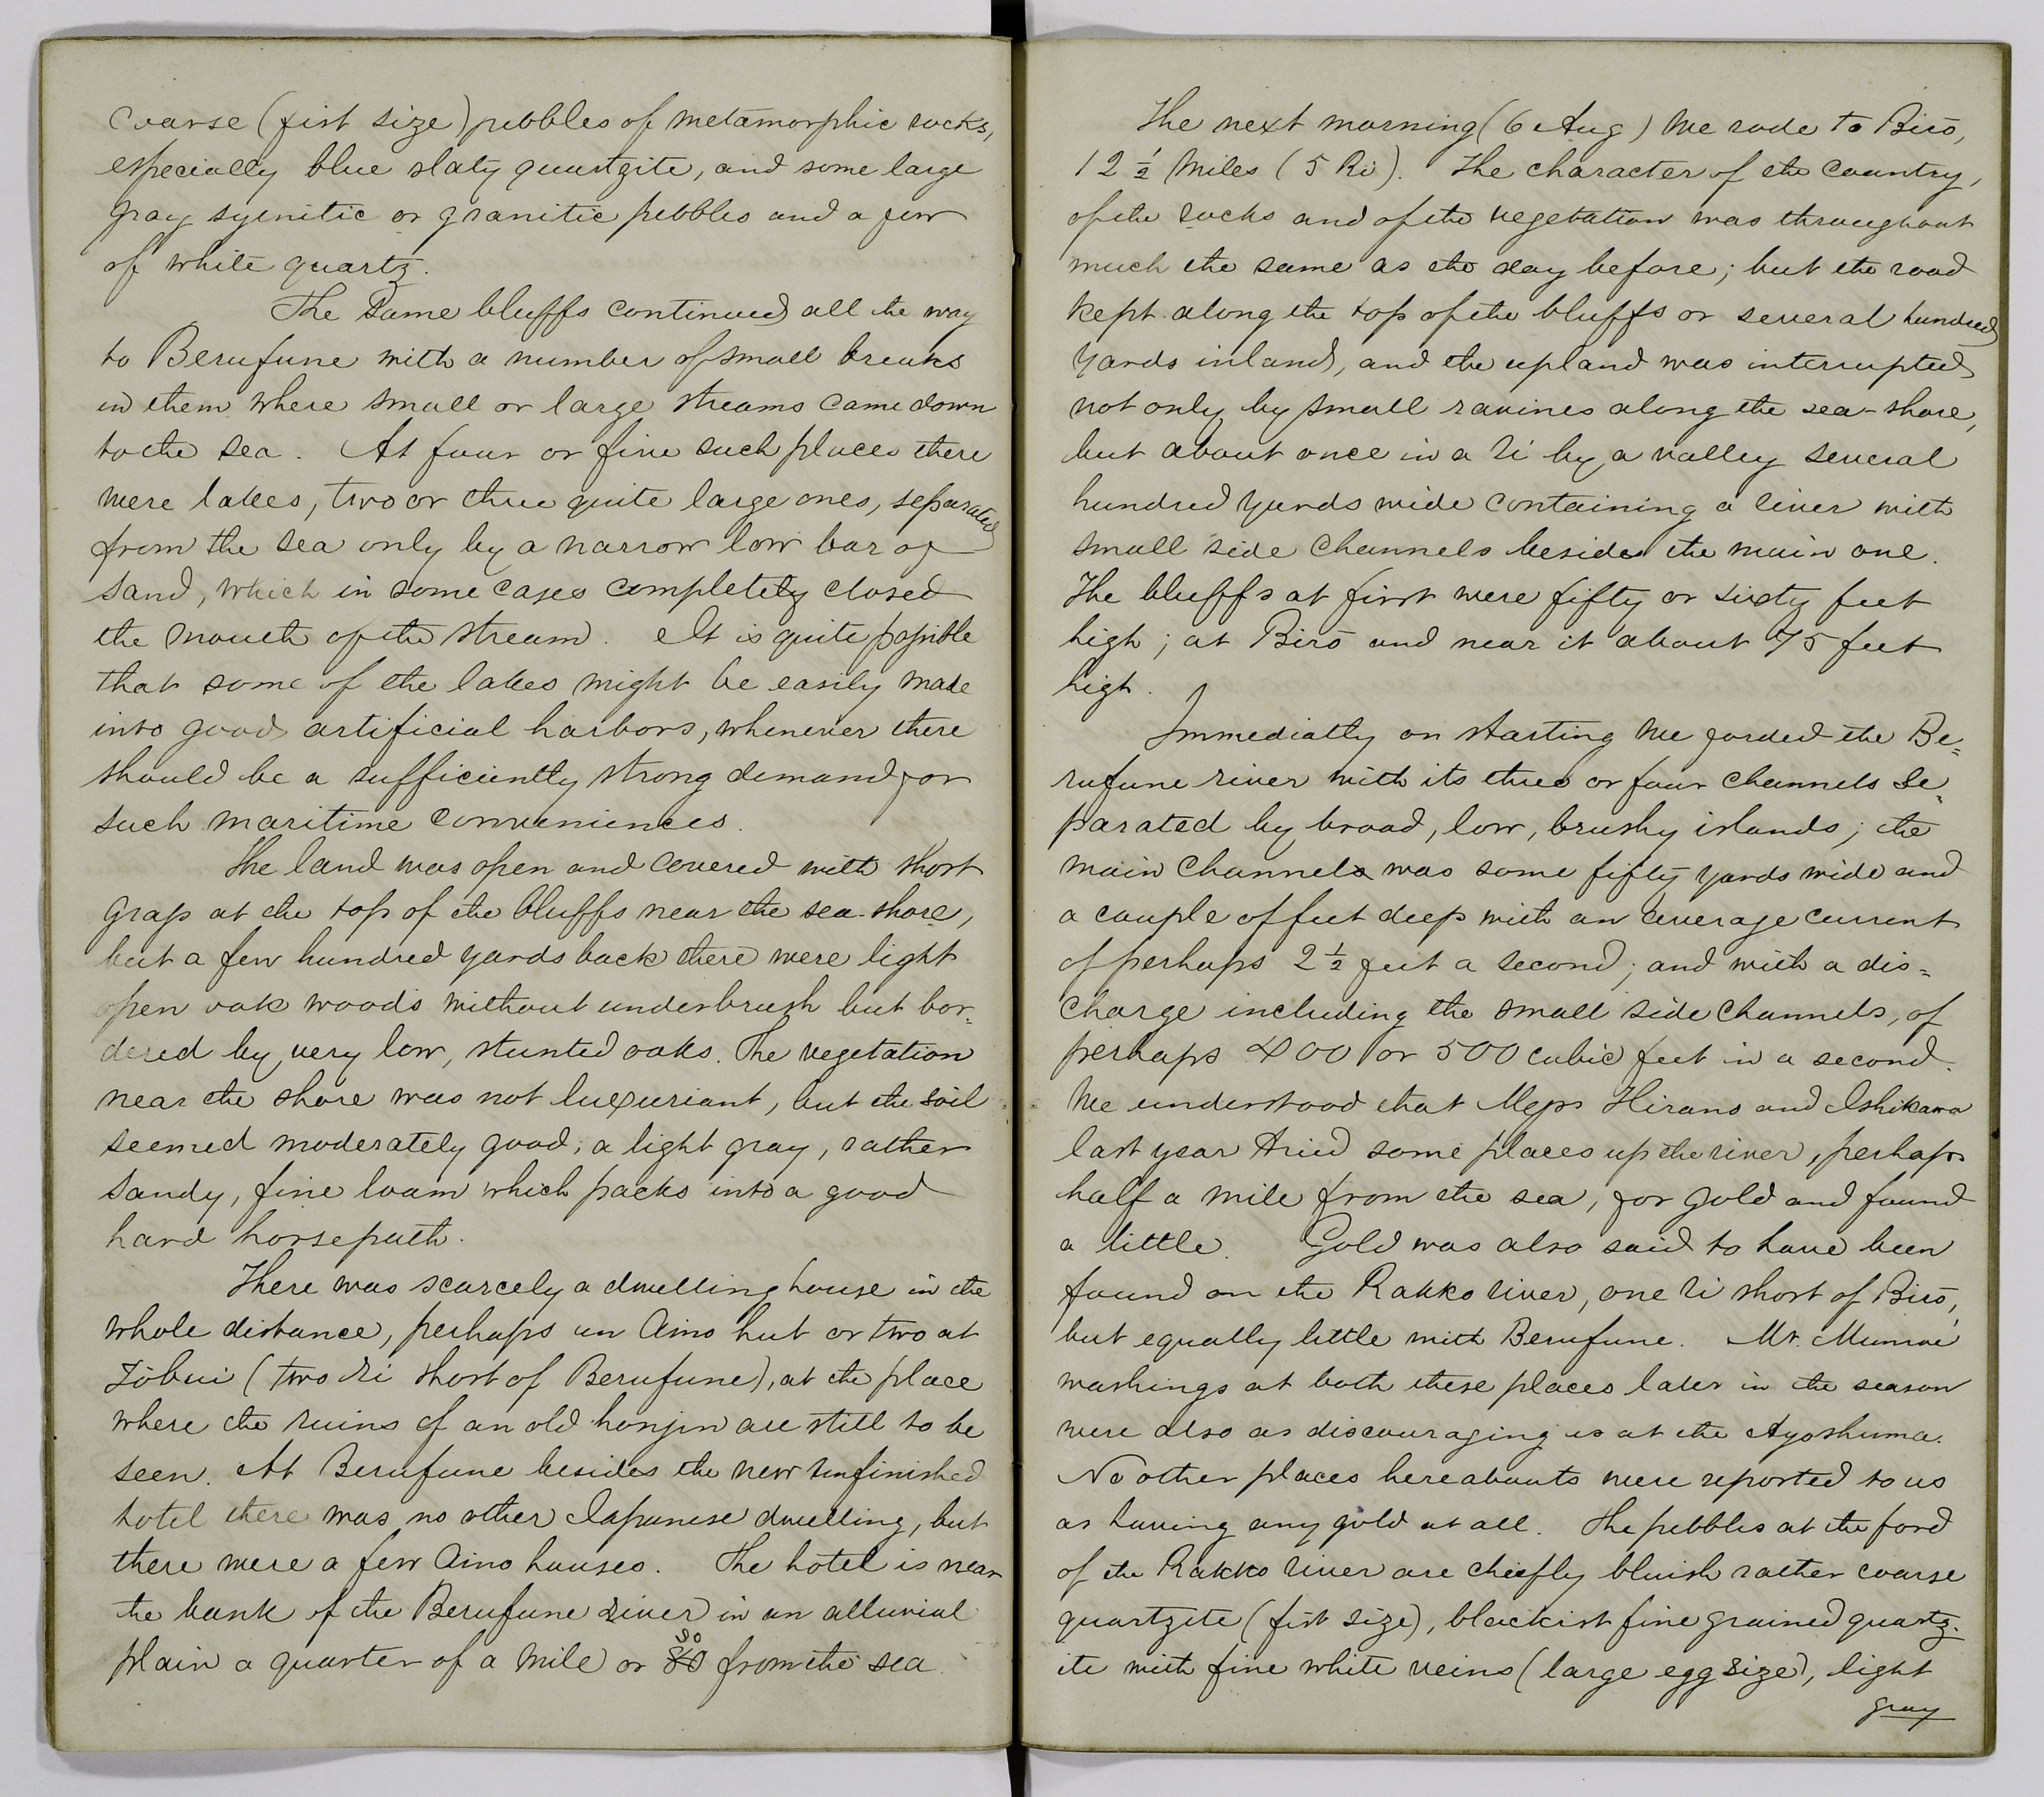 coarse (fist size) pebbles of metamorphic rocks,
especially blue slaty quartzite, and some large
gray syenitic or granitic pebbles and a few
of white quartz.
The same bluffs continued all the way
to Berufune with a number of small breaks
in them where small or large streams came down
to the sea. At four or five such places there
were lakes, two or three quite large ones, separated
from the sea only by a narrow low bar of
sand, which in some cases completely closed
the mouth of the stream. It is quite possible
that some of the lakes might be easily made
into good artificial harbors, whenever there
should be a sufficiently strong demand for
such maritime conveniences.
The land was open and covered with short
grass at the top of the bluffs near the sea-shore,
but a few hundred yards back there were light
open oak woods without underbrush but bor=
dered by very low, stunted oaks. The vegetation
near the shore was not luxuriant, but the soil
seemed moderately good; a light gray, rather
sandy, fine loam which packs into a good
hard horsepath.
There was scarcely a dwelling house in the
whole distance, perhaps an Aino hut or two at
Tōbui (two ri short of Berufune), at the place
where the ruins of an old honjin are still to be
seen. At Berufune besides the new unfinished
hotel there was no other Japanese dwelling, but
there were a few Aino houses. The hotel is near
the bank of the Berufune river in an alluvial
plain a quarter of a mile or so from the sea.
The next morning (6 Aug) we rode to Birō,
12 1/2 miles (5 Ri). The character of the country,
of the rocks and of the vegetation was throughout
much the same as the day before; but the road
kept along the top of the bluffs or several hundred
yards inland, and the upland was interrupted
not only by small ravines along the sea-shore,
but about once in a ri by a valley several
hundred yards wide containing a river with
small side channels besides the main one.
The bluffs at first were fifty or sixty feet
high; at Birō and near it about 75 feet
high.
Immediatly on starting we forded the Be=
rufune river with its three or four channels se=
parated by broad, low, brushy islands; the
main channel was some fifty yards wide and
a couple of feet deep with an average current
of perhaps 2 1/2 feet a second; and with a dis=
charge including the small side channels, of
perhaps 400 or 500 cubic feet in a second.
We understood that Messrs Hirano and Ishikawa
last year tried some places up the river, perhaps
half a mile from the sea, for gold and found
a little. Gold was also said to have been
found on the Rakko river, one ri short of Birō,
but equally little with Berufune. Mr. Munroe
washings at both these places later in the season
were also as discouraging as at the Ayoshima.
No other places hereabouts were reported to us
as having any gold at all. The pebbles at the ford
of the Rakko river are chiefly bluish rather coarse
quartzite (fist size), blackish fine grained quartz=
ite with fine white veins (large egg size), light
gray